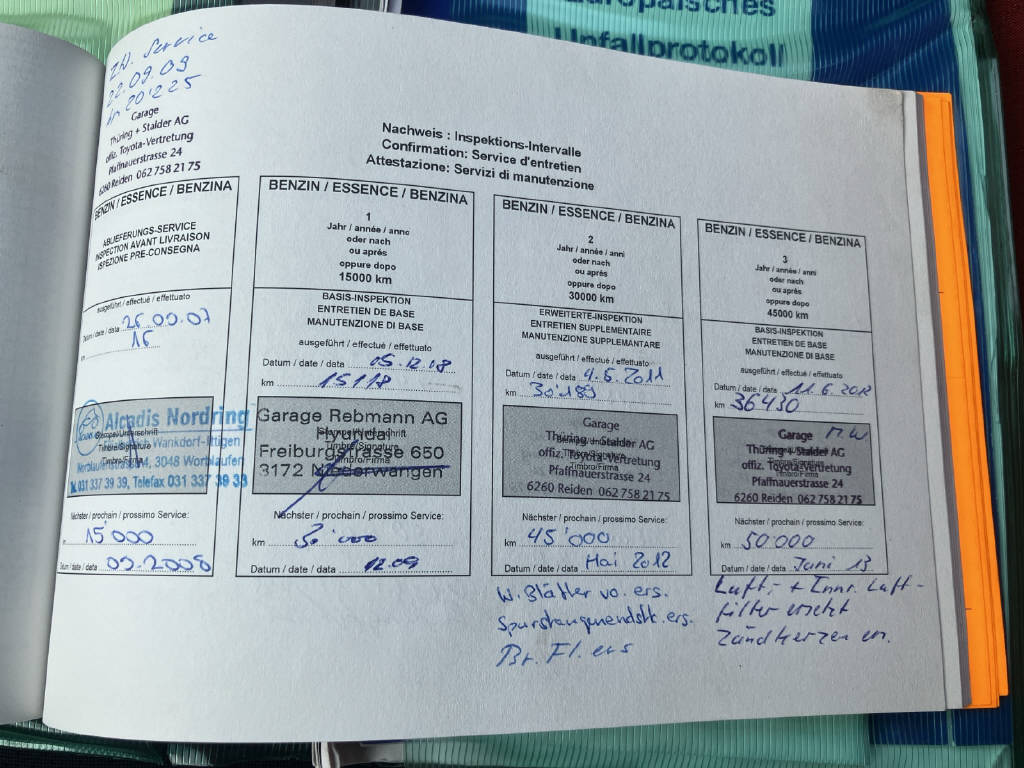 Europäisches
Unfallprotokoll
ZW. Service
22.09.09
km 20'225
Garage
Thüring + Stalder AG
offiz. Toyota-Vertretung
Pfaffnauerstrasse 24
6260 Reiden 062 758 21 75
Nachweis : Inspektions-Intervalle
Confirmation: Service d'entretien
Attestazione: Servizi di manutenzione
BENZIN / ESSENCE / BENZINA
ABLIEFERUNGS-SERVICE
INSPECTION AVANT LIVRAISON
ISPEZIONE PRE-CONSEGNA
ausgeführt / effectué / effettuato
Datum / date / data 26.09.07
km 16
Alcadis Nordring
Wankdorf-Ittigen
3048 Worblaufen
031 337 39 39, Telefax 031 337 39 33
Stempel/Unterschrift
Timbre/Signature
Timbro/Firma
Nächster / prochain / prossimo Service:
km 15'000
Datum / date / data 09.2008
BENZIN / ESSENCE / BENZINA
1
Jahr / année / anno
oder nach
ou après
oppure dopo
15000 km
BASIS-INSPEKTION
ENTRETIEN DE BASE
MANUTENZIONE DI BASE
ausgeführt / effectué / effettuato
Datum / date / data 05.12.08
km 15118
Garage Rebmann AG
Hyundai
Freiburgstrasse 650
3172 Niederwangen
Stempel/Unterschrift
Timbre/Signature
Timbro/Firma
Nächster / prochain / prossimo Service:
km 30'000
Datum / date / data 12.09
BENZIN / ESSENCE / BENZINA
2
Jahr / année / anni
oder nach
ou après
oppure dopo
30000 km
ERWEITERTE-INSPEKTION
ENTRETIEN SUPPLEMENTAIRE
MANUTENZIONE SUPPLEMANTARE
ausgeführt / effectué / effettuato
Datum / date / data 4.5.2011
km 30'189
Garage
Thüring + Stalder AG
offiz. Toyota-Vertretung
Pfaffnauerstrasse 24
6260 Reiden 062 758 21 75
Nächster / prochain / prossimo Service:
km 45'000
Datum / date / data Mai 2012
W. Blätter vo. ers.
Spurstangenendstk. ers.
Br. Fl. ers
BENZIN / ESSENCE / BENZINA
3
Jahr / année / anni
oder nach
ou après
oppure dopo
45000 km
BASIS-INSPEKTION
ENTRETIEN DE BASE
MANUTENZIONE DI BASE
ausgeführt / effectué / effettuato
Datum / date / data 11.6.2012
km 36430
Garage M.W
Thüring + Stalder AG
offiz. Toyota-Vertretung
Pfaffnauerstrasse 24
6260 Reiden 062 758 21 75
Nächster / prochain / prossimo Service:
km 50'000
Datum / date / data Juni 13
Luft- + Innr. Luft-
filter ersetzt
Zündkerzen er.